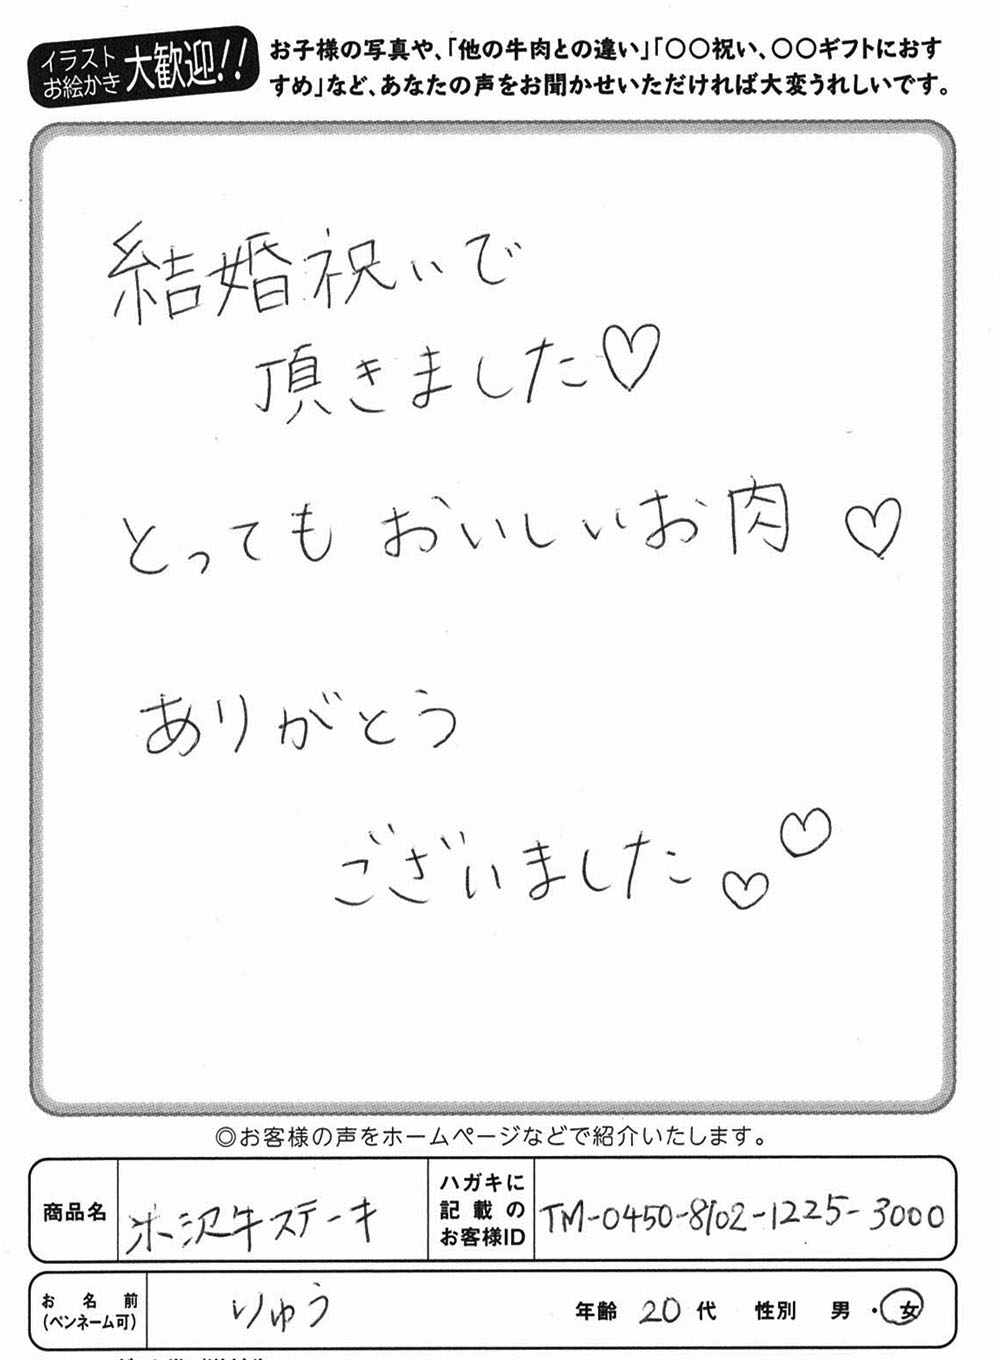 イラスト
お絵かき
大歓迎!!
お子様の写真や、「他の牛肉との違い」「〇〇祝い、〇〇ギフトにおす
すめ」など、あなたの声をお聞かせいただければ大変うれしいです。
結婚祝いで
頂きました♡
とっても おいしいお肉 ♡
ありがとう
ございました♡♡
◎お客様の声をホームページなどで紹介いたします。
商品名 米沢牛ステーキ
ハガキに
記載の
お客様ID
TM-0450-8102-1225-3000
お名前
(ペンネーム可)
りゅう
年齢 20 代 性別 男・女